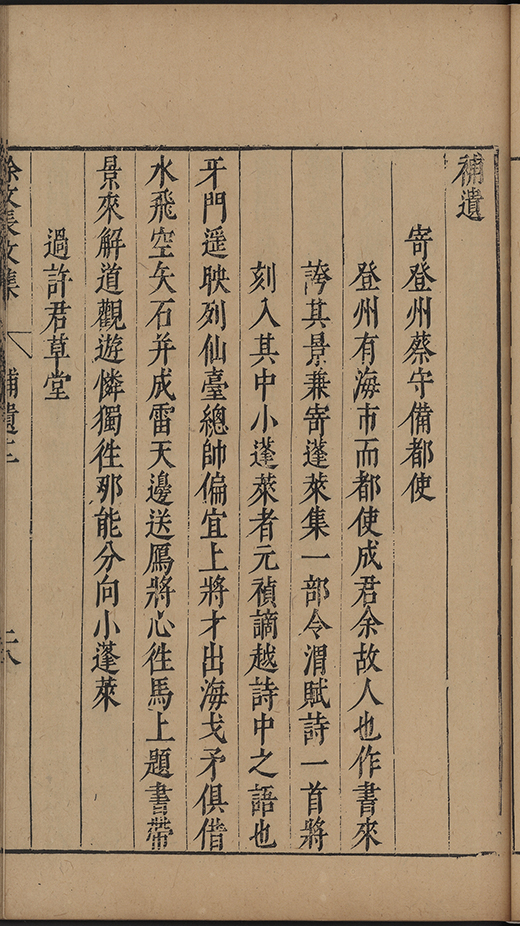 補遺
寄登州蔡守備都使
登州有海市而都使成君余故人也作書來
誇其景兼寄蓬萊集一部令渭賦詩一首將
刻入其中小蓬萊者元稹謫越詩中之語也
牙門遥映列仙臺總帥偏宜上將才出海戈矛俱借
水飛空矢石并成雷天邊送鴈將心徃馬上題書帶
景來解道觀遊憐獨徃那能分向小蓬萊
過許君草堂
徐文長文集
補遺